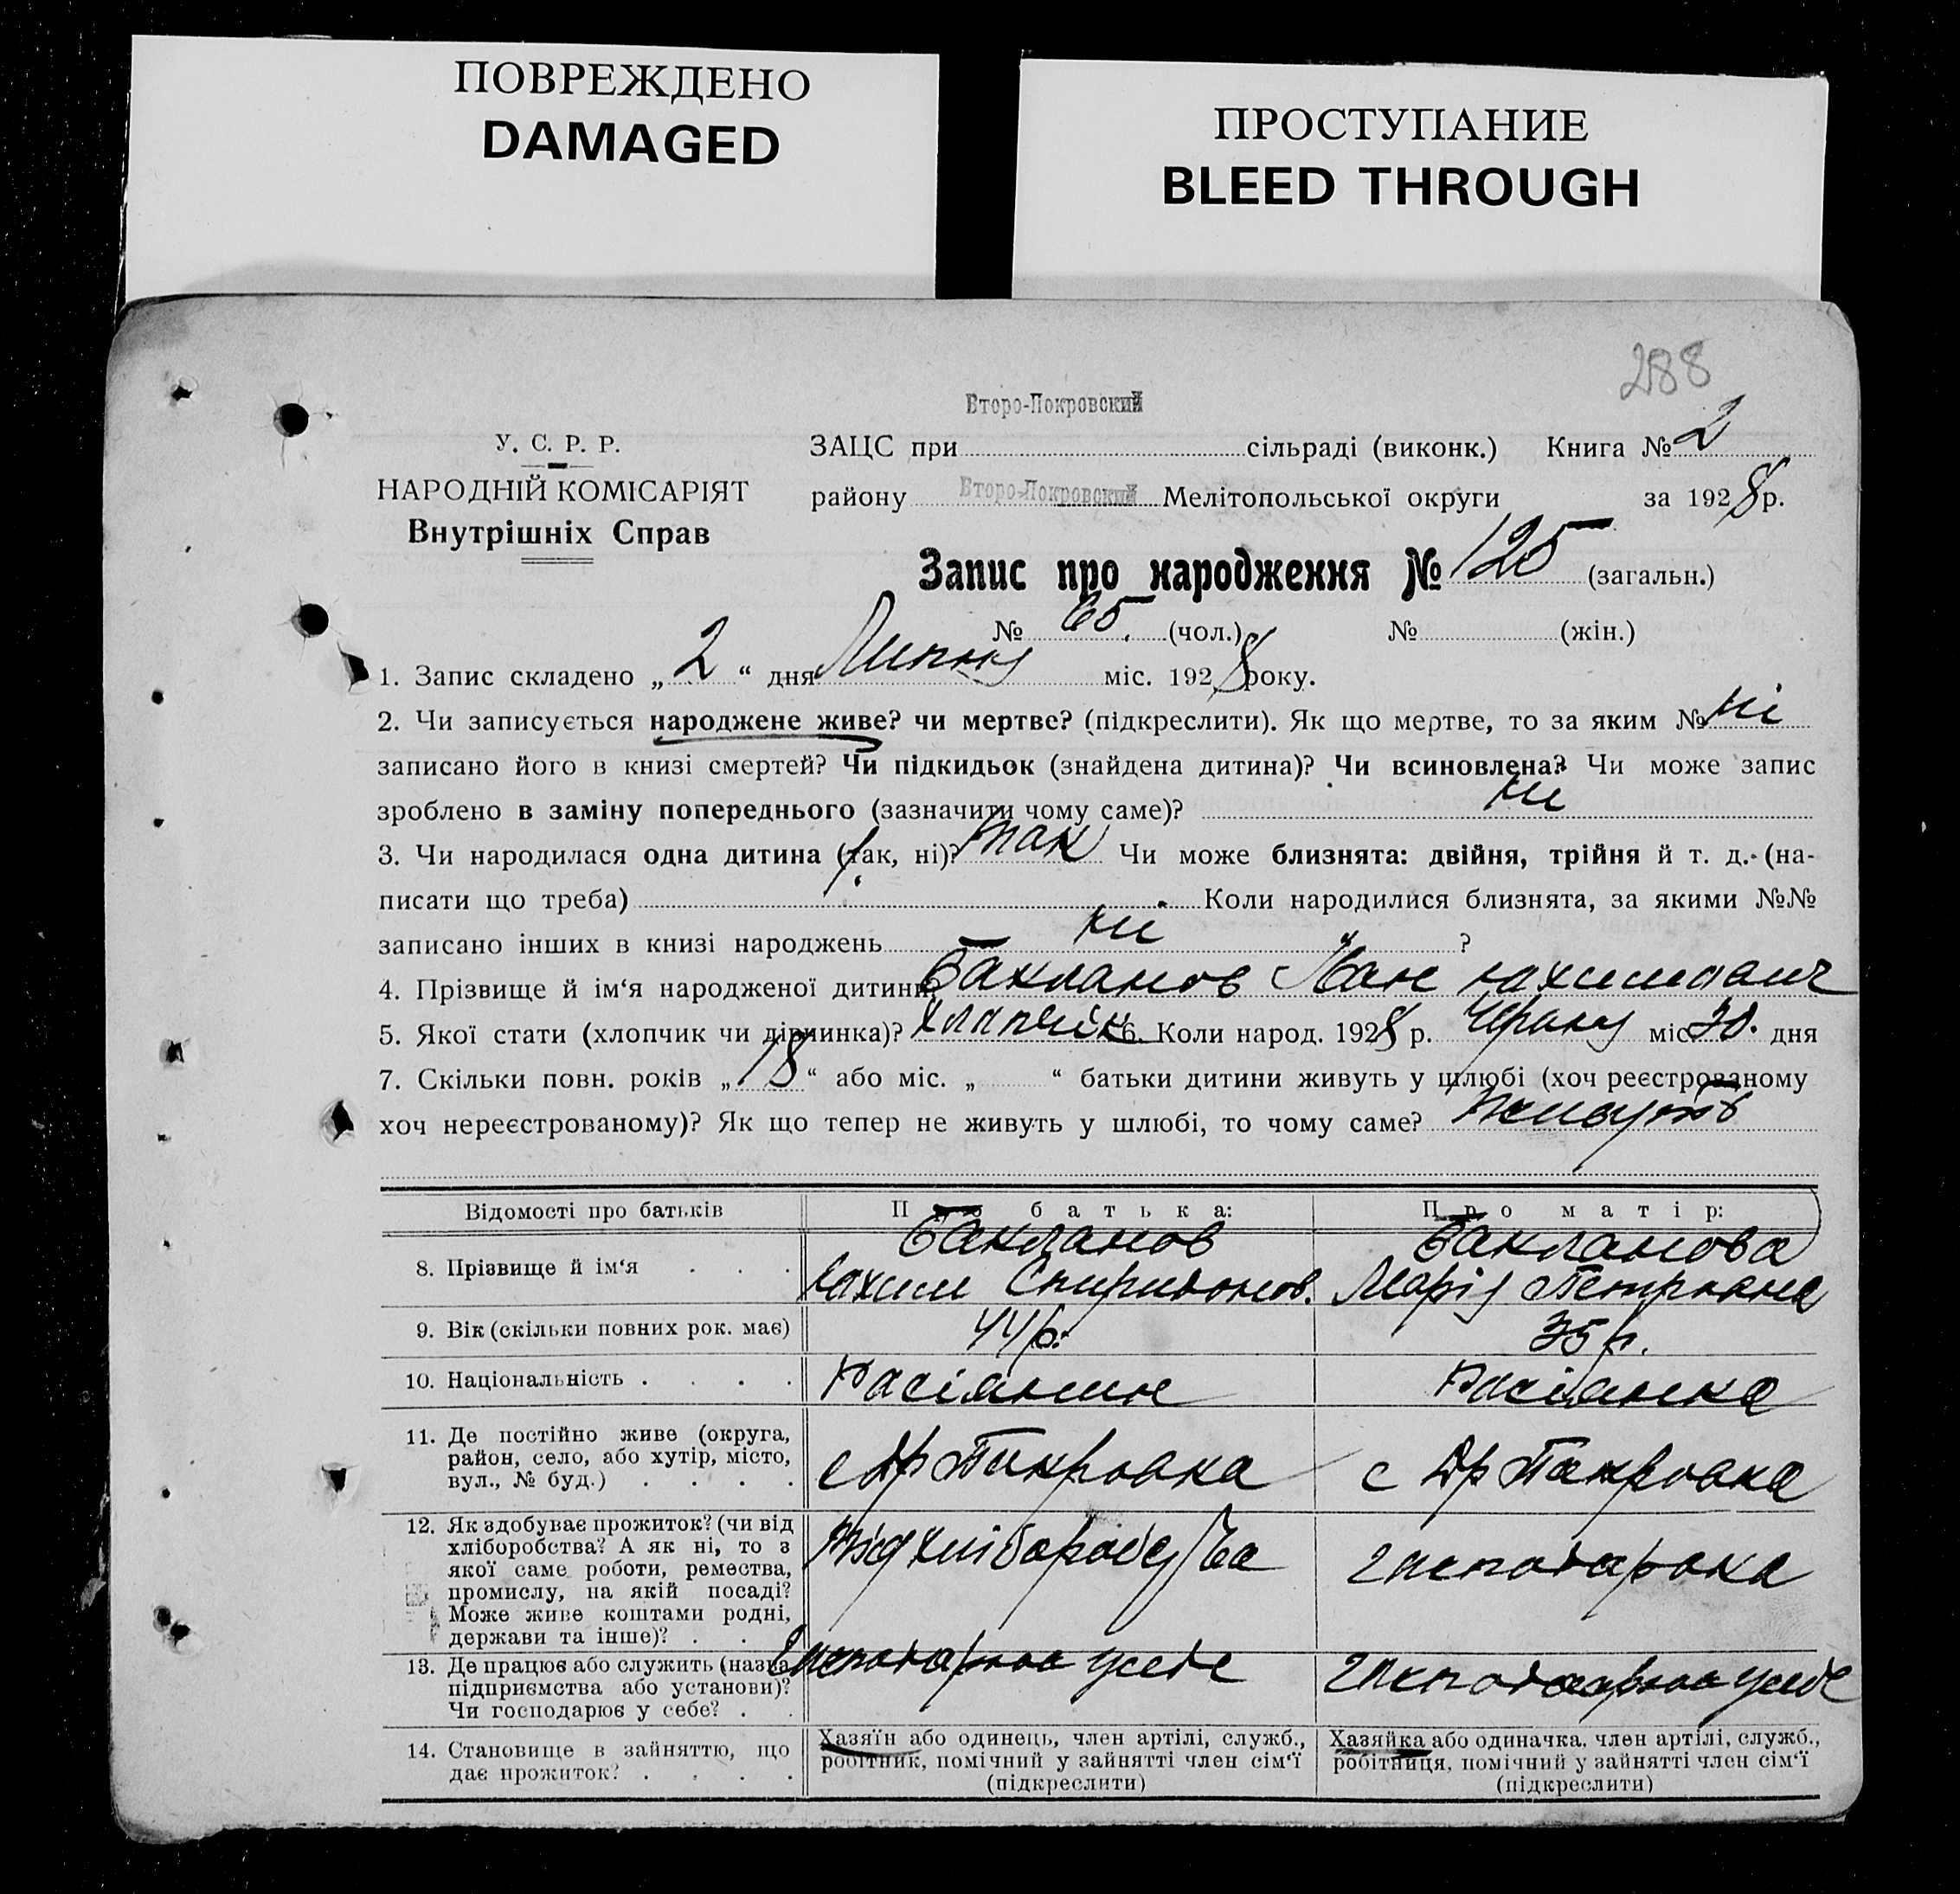 ПОВРЕЖДЕНО
DAMAGED
ПРОСТУПАНИЕ
BLEED THROUGH
288
Второ-Покровский
У. С. Р. Р.
НАРОДНІЙ КОМІСАРІЯТ
Внутрішніх Справ
ЗАЦС при сільраді (виконк.) Книга № 2
району Второ-Покровский Мелітопольської округи за 1928 р.
Запис про народження № 125 (загальн.)
№ 65. (чол.) № (жін.)
1. Запис складено „ 2 “ дня Липня міс. 1928 року.
2. Чи записується народжене живе? чи мертве? (підкреслити). Як що мертве, то за яким № ні
записано його в книзі смертей? Чи підкидьок (знайдена дитина)? Чи всиновлена? Чи може запис
зроблено в заміну попереднього (зазначити чому саме)? ні
3. Чи народилася одна дитина (так, ні)? так Чи може близнята: двійня, трійня й т. д. (на-
писати що треба) Коли народилися близнята, за якими №№
записано інших в книзі народжень ні ?
4. Прізвище й ім‘я народженої дитини Бакланов Иван
5. Якої стати (хлопчик чи дівчинка)? хлапчік 6. Коли народ. 1928 р. Черня міс. 30. дня
7. Скільки повн. років „ 18 “ або міс. „ “ батьки дитини живуть у шлюбі (хоч реєстрованому
хоч нереєстрованому)? Як що тепер не живуть у шлюбі, то чому саме? живуть
Відомості про батьків Про батька: Про матір:
8. Прізвище й ім‘я . . . Бакланов Яхим Спиридонов. Бакланова Марія Петровна
9. Вік (скільки повних рок. має) 44 р. 35 р.
10. Національність . . . . Расіянин Расіянка
11. Де постійно живе (округа,
район, село, або хутір, місто,
вул., № буд.) . . . . с Др Пакровка с Др Пакровка
12. Як здобуває прожиток? (чи від
хліборобства? А як ні, то з
якої саме роботи, ремества,
промислу, на якій посаді?
Може живе коштами родні,
держави та інше)? . . .
13. Де працює або служить (назва
підприємства або установи)?
Чи господарює у себе? . .
14. Становище в зайняттю, що
дає прожиток? . . . .
Хазяїн або одинець, член артілі, служб.,
робітник, помічний у зайнятті член сім‘ї
(підкреслити)
Хазяйка або одиначка, член артілі, служб.,
робітниця, помічний у зайнятті член сім‘ї
(підкреслити)